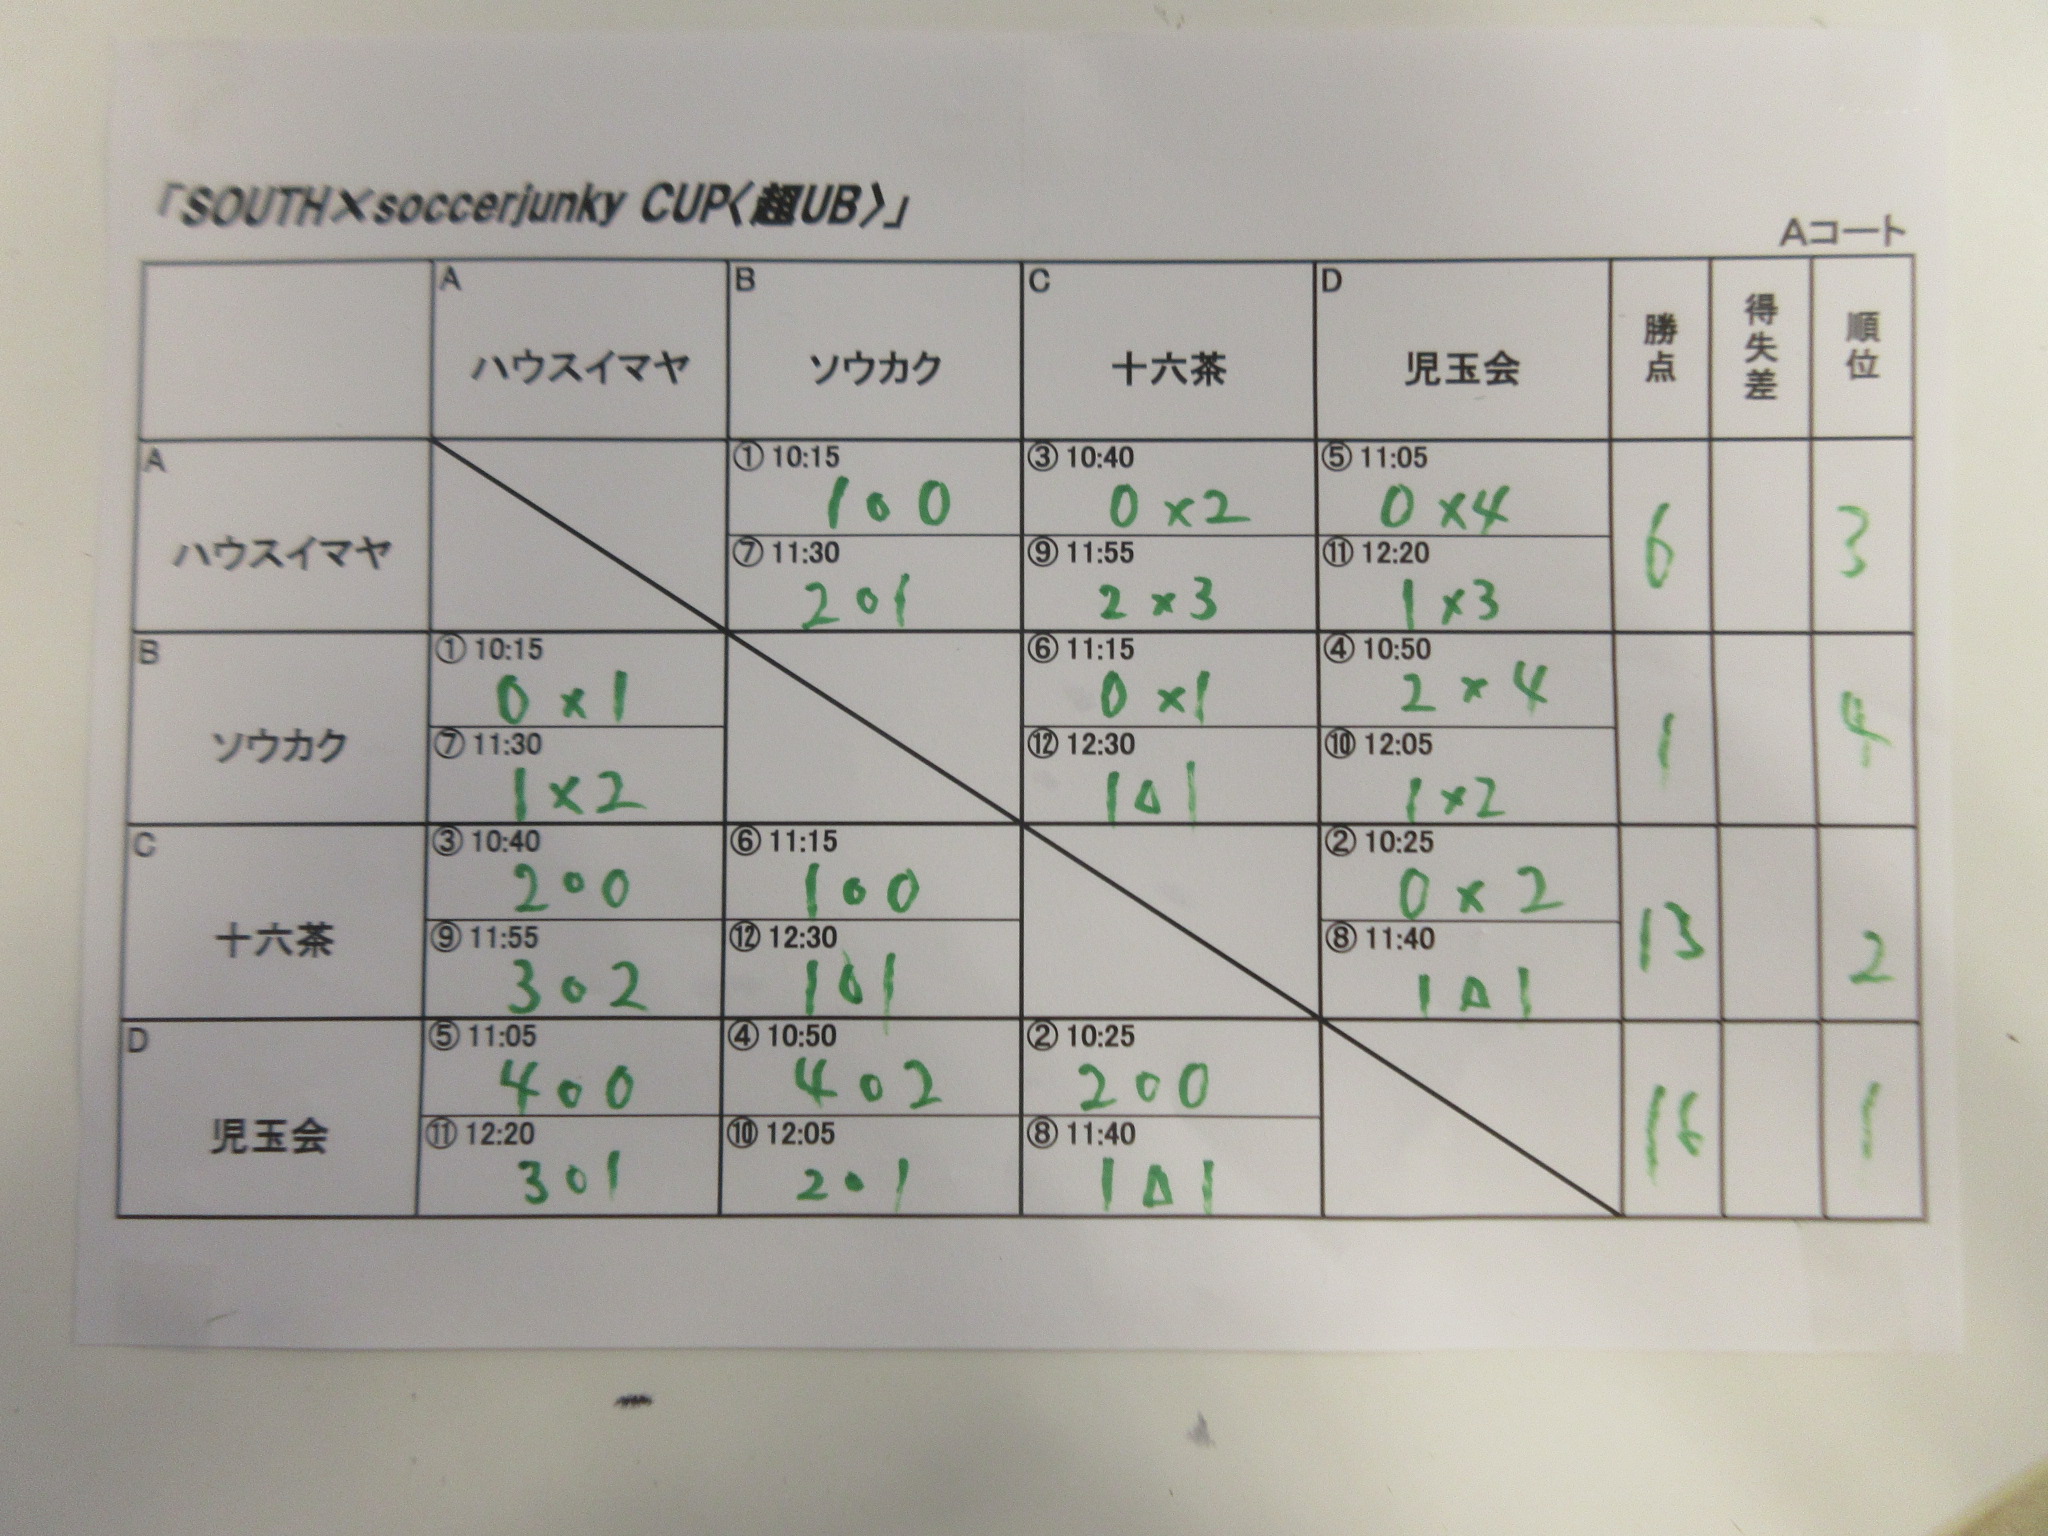 「SOUTH×soccerjunky CUP〈超UB〉」
Aコート
A ハウスイマヤ B ソウカク C 十六茶 D 児玉会 勝点 得失差 順位
A ハウスイマヤ
① 10:15 ③ 10:40 ⑤ 11:05
1 o 0 0 × 2 0 × 4
⑦ 11:30 ⑨ 11:55 ⑪ 12:20
2 o 1 2 × 3 1 × 3
6 3
B ソウカク
① 10:15 ⑥ 11:15 ④ 10:50
0 × 1 0 × 1 2 × 4
⑦ 11:30 ⑫ 12:30 ⑩ 12:05
1 × 2 1 △ 1 1 × 2
1 4
C 十六茶
③ 10:40 ⑥ 11:15 ② 10:25
2 o 0 1 o 0 0 × 2
⑨ 11:55 ⑫ 12:30 ⑧ 11:40
3 o 2 1 △ 1 1 △ 1
13 2
D 児玉会
⑤ 11:05 ④ 10:50 ② 10:25
4 o 0 4 o 2 2 o 0
⑪ 12:20 ⑩ 12:05 ⑧ 11:40
3 o 1 2 o 1 1 △ 1
16 1